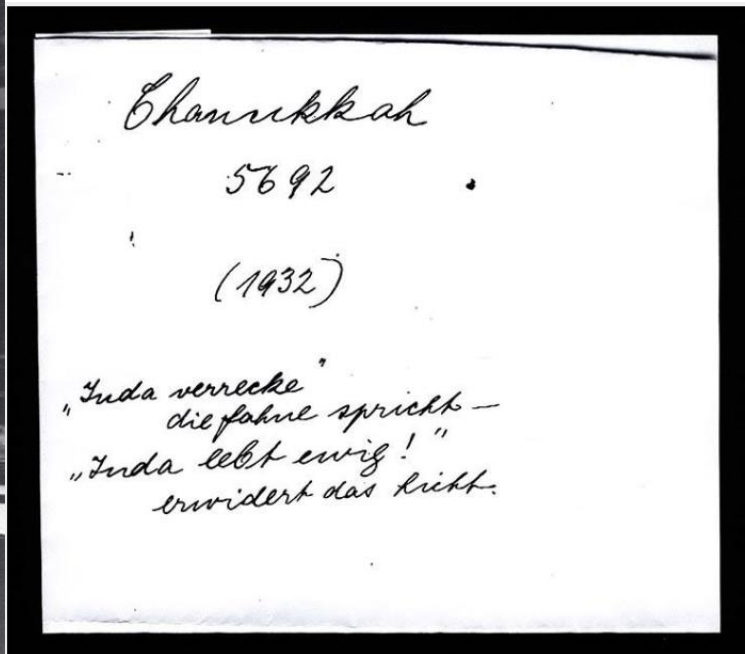 Chanukkah
5692
(1932)
„Juda verrecke"
die Fahne spricht —
„Juda lebt ewig!"
erwidert das Licht.